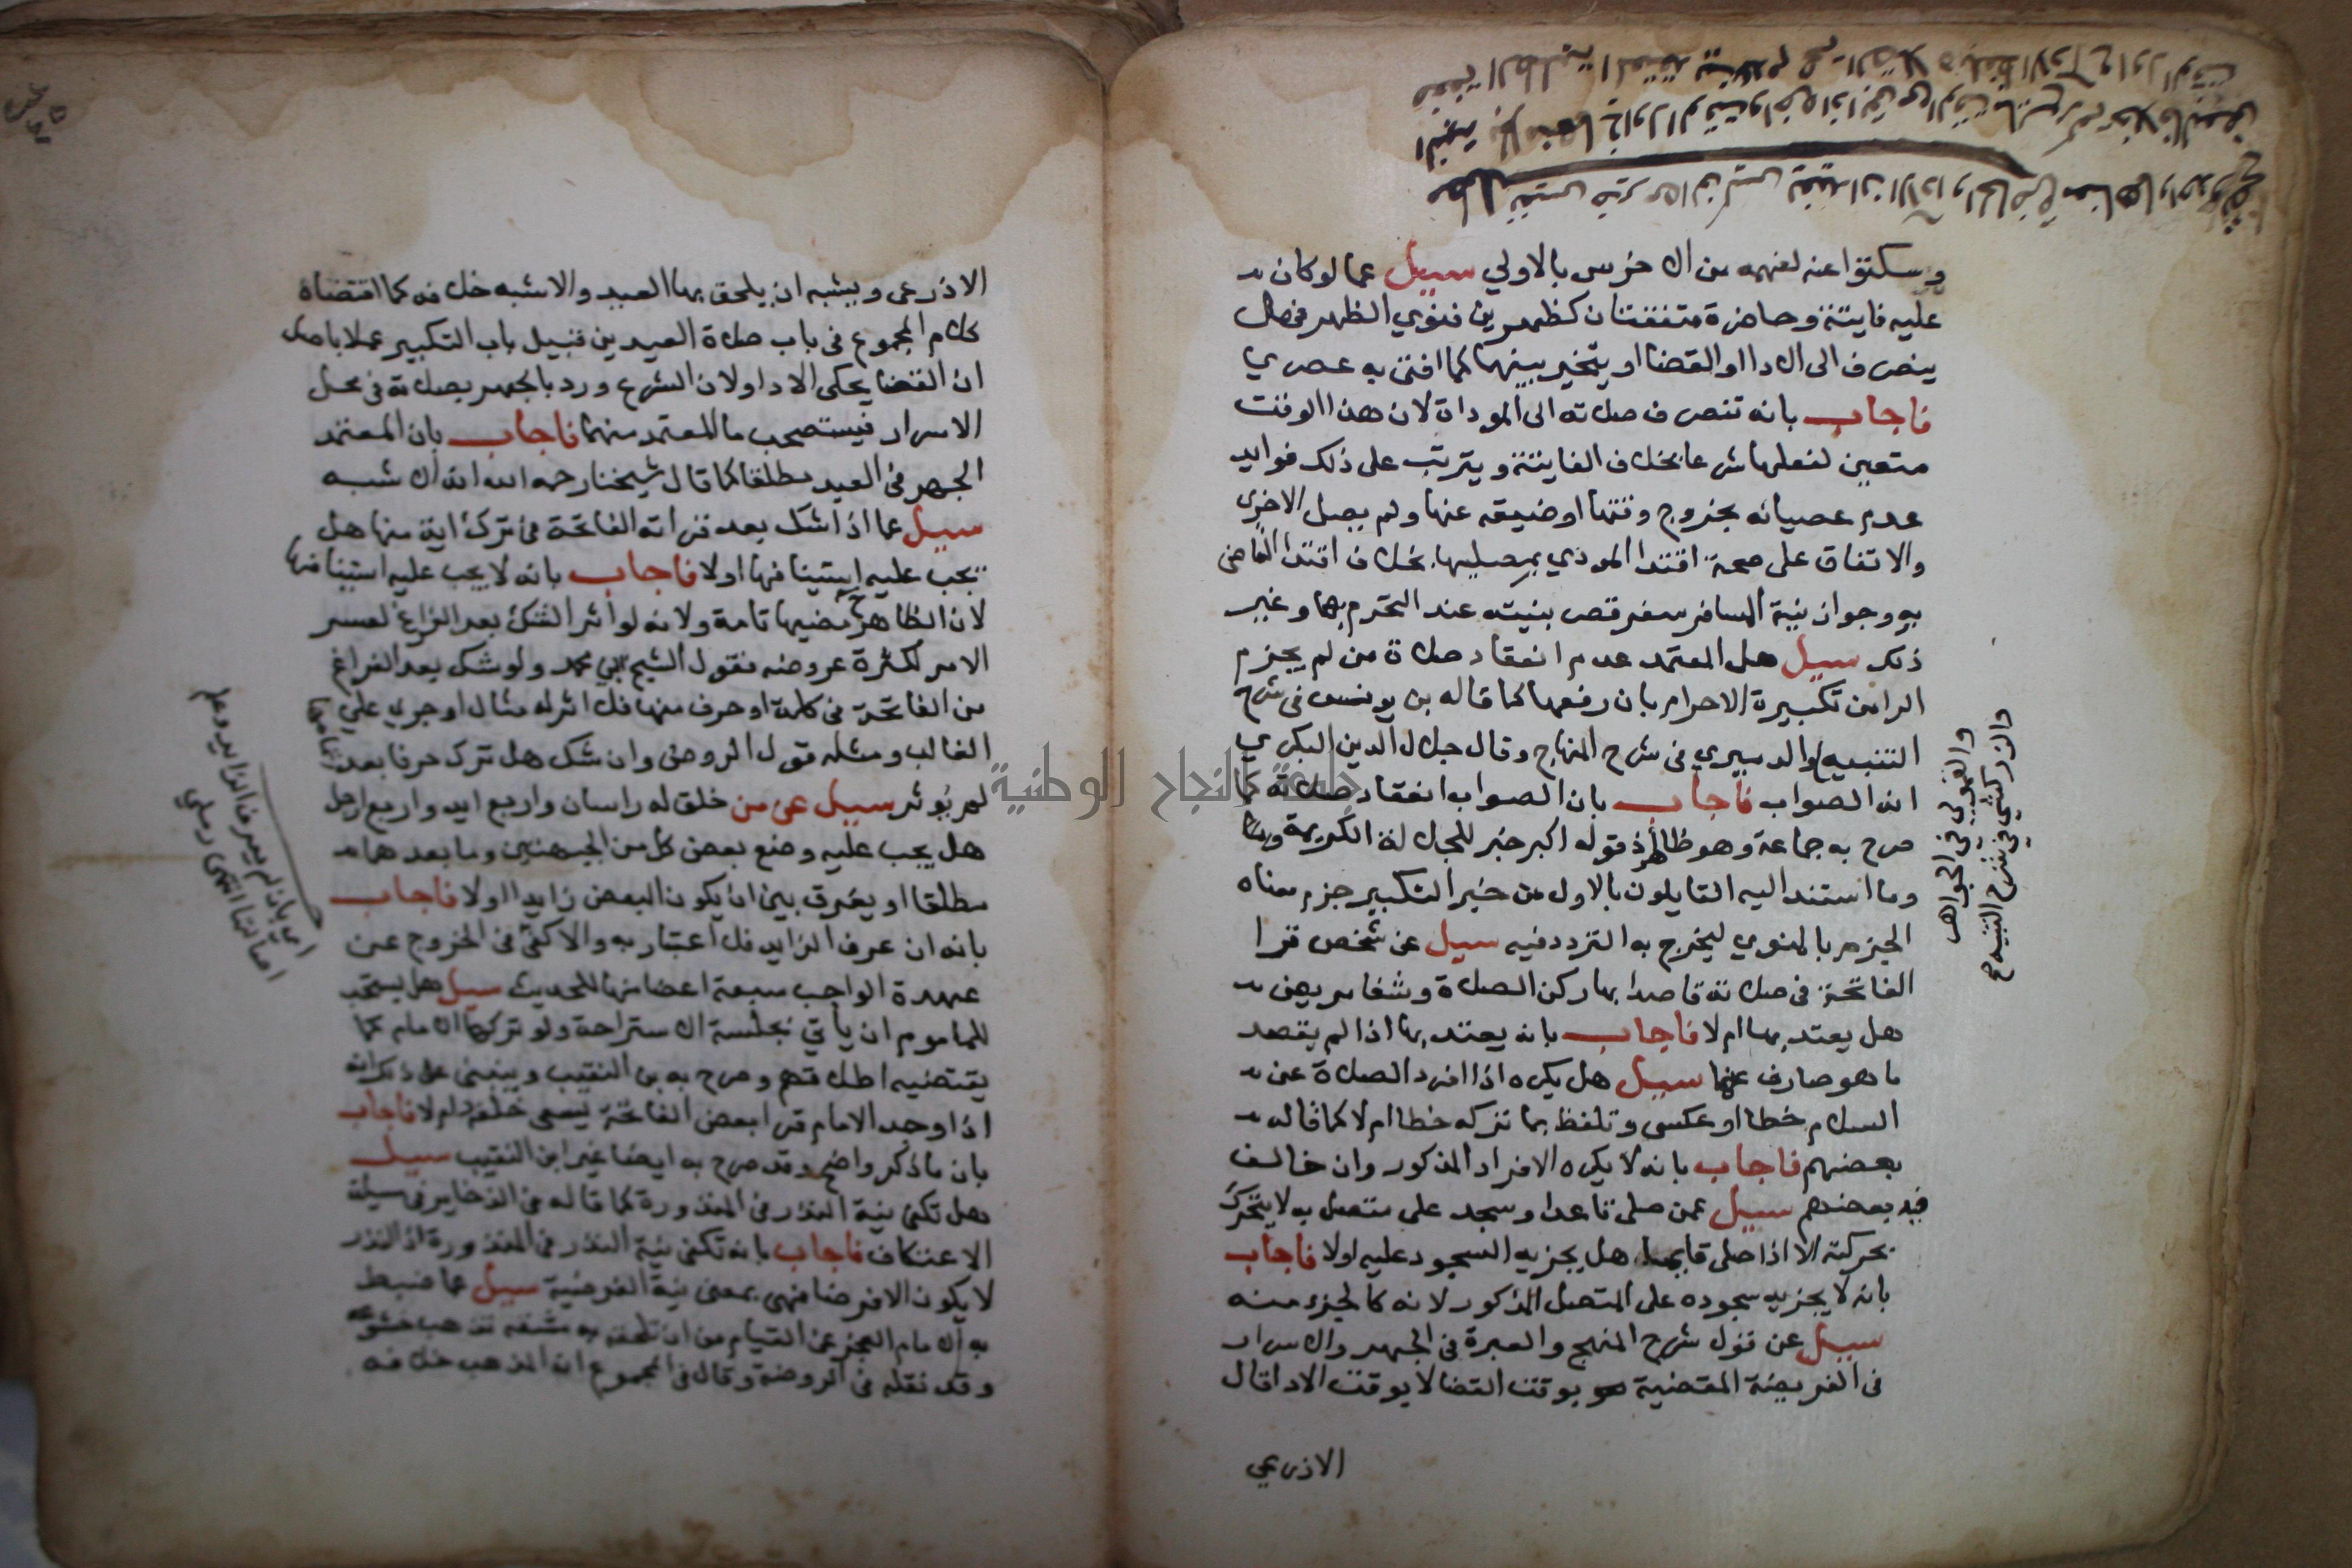 وسكتوا عنه لفهمه من الاخرس بالاولي سييل عما لو كان
عليه فايتة وحاضرة متفقتان كظهرين فنوي الظهر فهل
ينصرف الى الادا او القضا او يتخير بينهما كما افتى به عصري
فاجاب بانه تنصرف صلاته الى الموداة لان هذا الوقت
متعين لفعلها شرعا بخلاف الفايتة ويترتب على ذلك فوايد
عدم عصيانه بخروج وقتها او ضيقه عنها ولم يصل الاخرى
والاتفاق على صحة اقتدا الموذي بمصليها بخلاف اقتدا القاضى
به وجواز نية المسافر سفر قصر بنيته عند التحرم بها وغير
ذلك سييل هل المعتمد عدم انعقاد صلاة من لم يجزم
الرا من تكبيرة الاحرام بان رفعها كما قاله بن يونس فى شرح
التنبيه والدميري فى شرح المنهاج وقال جلال الدين البكري
انه الصواب فاجاب بان الصواب انعقاد صلاته كما
صرح به جماعة وهو ظاهر اذ قوله اكبر خبر للجلالة الكريمة
وما استند اليه القايلون بالاول من خبر التكبير جزم معناه
الجزم بالمنوي ليخرج به التردد فيه سييل عن شخص قرا
الفاتحة فى صلاته قاصدا بها ركن الصلاة وشفا مريض
هل يعتد بها ام لا فاجاب بانه يعتد بها اذا لم يقصد
ما هو صارف عنها سييل هل يكره اذا افرد الصلاة عن
السلام خطا او عكسى وتلفظ بما تركه خطا ام لا كما قاله
بعضهم فاجاب بانه لا يكره الافراد المذكور وان خالف
فيه بعضهم سييل عمن صلى قاعدا وسجد على متصل به لا يتحرك
بحركته الا اذا صلى قايما هل يجزيه السجود عليه اولا فاجاب
بانه لا يجزيه سجوده على المتصل المذكور لانه كالجزء منه
سييل عن قول شرح المنهج والعبرة فى الجهر والاسرار
فى الفريضة المقضية بوقت القضا لا بوقت الادا قال
الاذرعي
والقمولي في الجواهر
والزركشي في شرح التنبيه
الاذرعى ويشبه ان يلحق بها العيد والاشبه خلافه كما اقتضاه
كلام المجموع فى باب صلاة العيدين قبيل باب التكبير عملا باصل
ان القضا يحكى الادا ولان الشرع ورد بالجهر بصلاته فى محل
الاسرار فيستصحب ما المعتمد منهما فاجاب بان المعتمد
الجهر فى العيد مطلقا كما قال شيخنا رحمه الله انه الاشبه
سييل عما اذا شك بعد قراته الفاتحة فى ترك اية منها هل
يجب عليه استينافها اولا فاجاب بانه لا يجب عليه استينافها
لان الظاهر مضيها تامة ولانه لو اثر الشك بعد الفراغ لعسر
الامر لكثرة عروضه فقول الشيخ ابي محمد ولو شك بعد الفراغ
من الفاتحة فى كلمة او حرف منها فلا اثر له مثال او جري علي
الغالب ومثله قول الروض وان شك هل ترك حرفا بعد تمامها
لم يوثر سييل عن من خلق له راسان واربع ايد واربع ارجل
هل يجب عليه وضع بعض كل من الجبهتين وما بعدهما
مطلقا او يفرق بين ان يكون البعض زايدا اولا فاجاب
بانه ان عرف الزايد فلا اعتبار به والا كفى فى الخروج عن
عهدة الواجب سبعة اعضا منها للحديث سييل هل يستحب
للماموم ان ياتي بجلسة الاستراحة ولو تركها الامام كما
يقتضيه اطلاقهم وصرح به بن النقيب وينبنى على ذلك انه
اذا وجد الامام قرا بعض الفاتحة خلفه ام لا فاجاب
بان ما ذكر واضح وقد صرح به ايضا غير ابن النقيب سييل
هل تكفى نية النذر فى المنذورة كما قاله فى الذخاير فى
الاعتكاف فاجاب بانه تكفى نية النذر فى المنذورة اذ النذر
لا يكون الا فرضا فهى بمعنى نية الفرضية سييل عما ضبط
به الامام العجز عن القيام من ان تلحقه به مشقة تذهب خشوعه
وقد نقله فى الروضة وقال فى المجموع ان المذهب خلافه
اي بان لم يعرف الزايد وعلم
اصالتها انتهى رملي